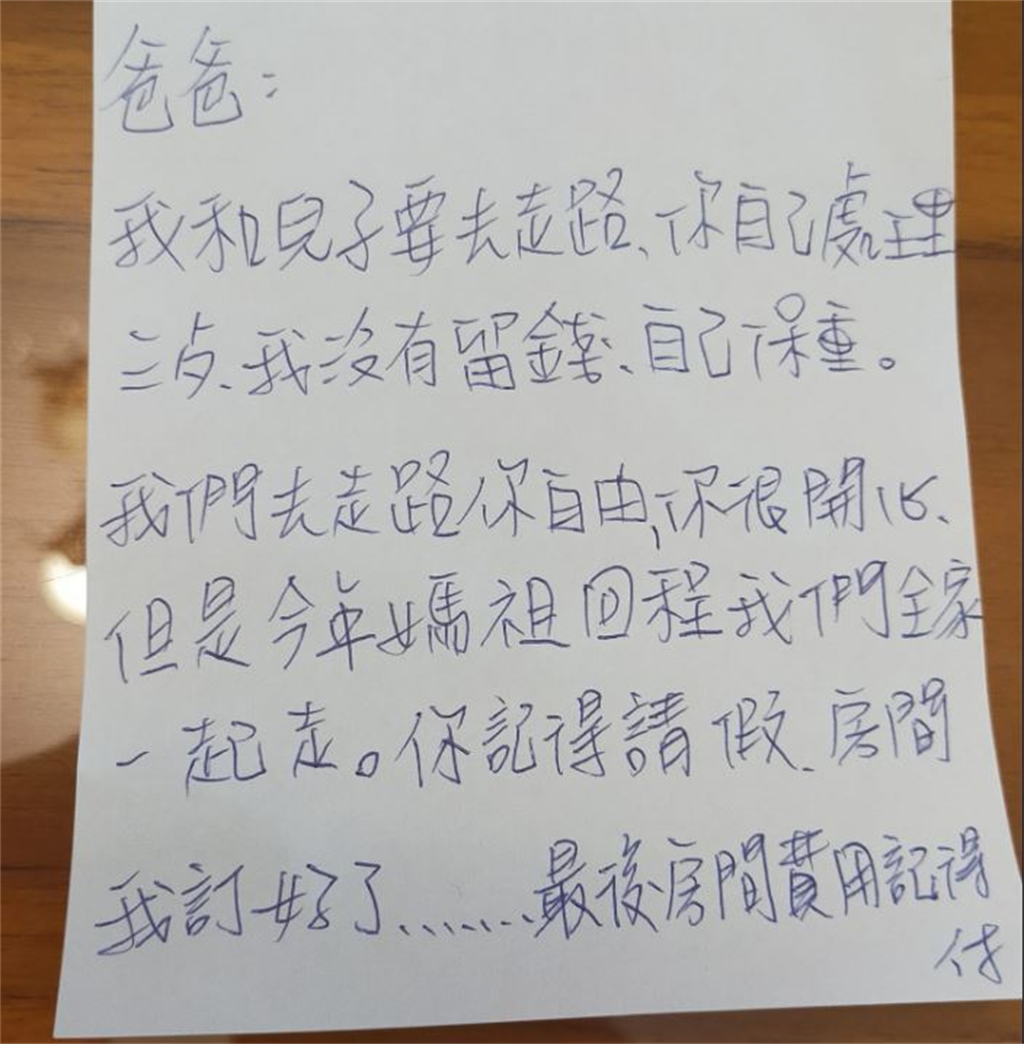 爸爸：
我和兒子要去走路、你自己處理
三点、我沒有留錢、自己保重。
我們去走路你自由，你很開心、
但是今年媽祖回程我們全家
一起走。你記得請假、房間
我訂好了.......最後房間費用記得
付